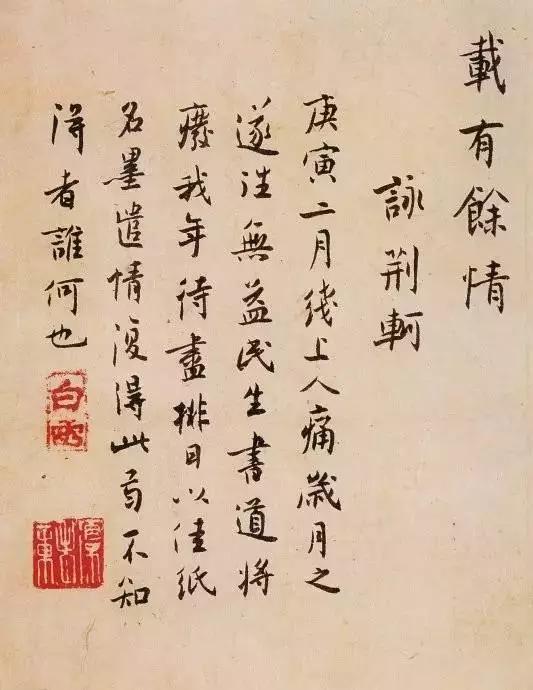 載有餘情
詠荆軻
庚寅二月綫上人痛歲月之
遂往無益民生書道將
癈我年待盡排日以佳紙
名墨遣情復得此首不知
得者誰何也
白雲